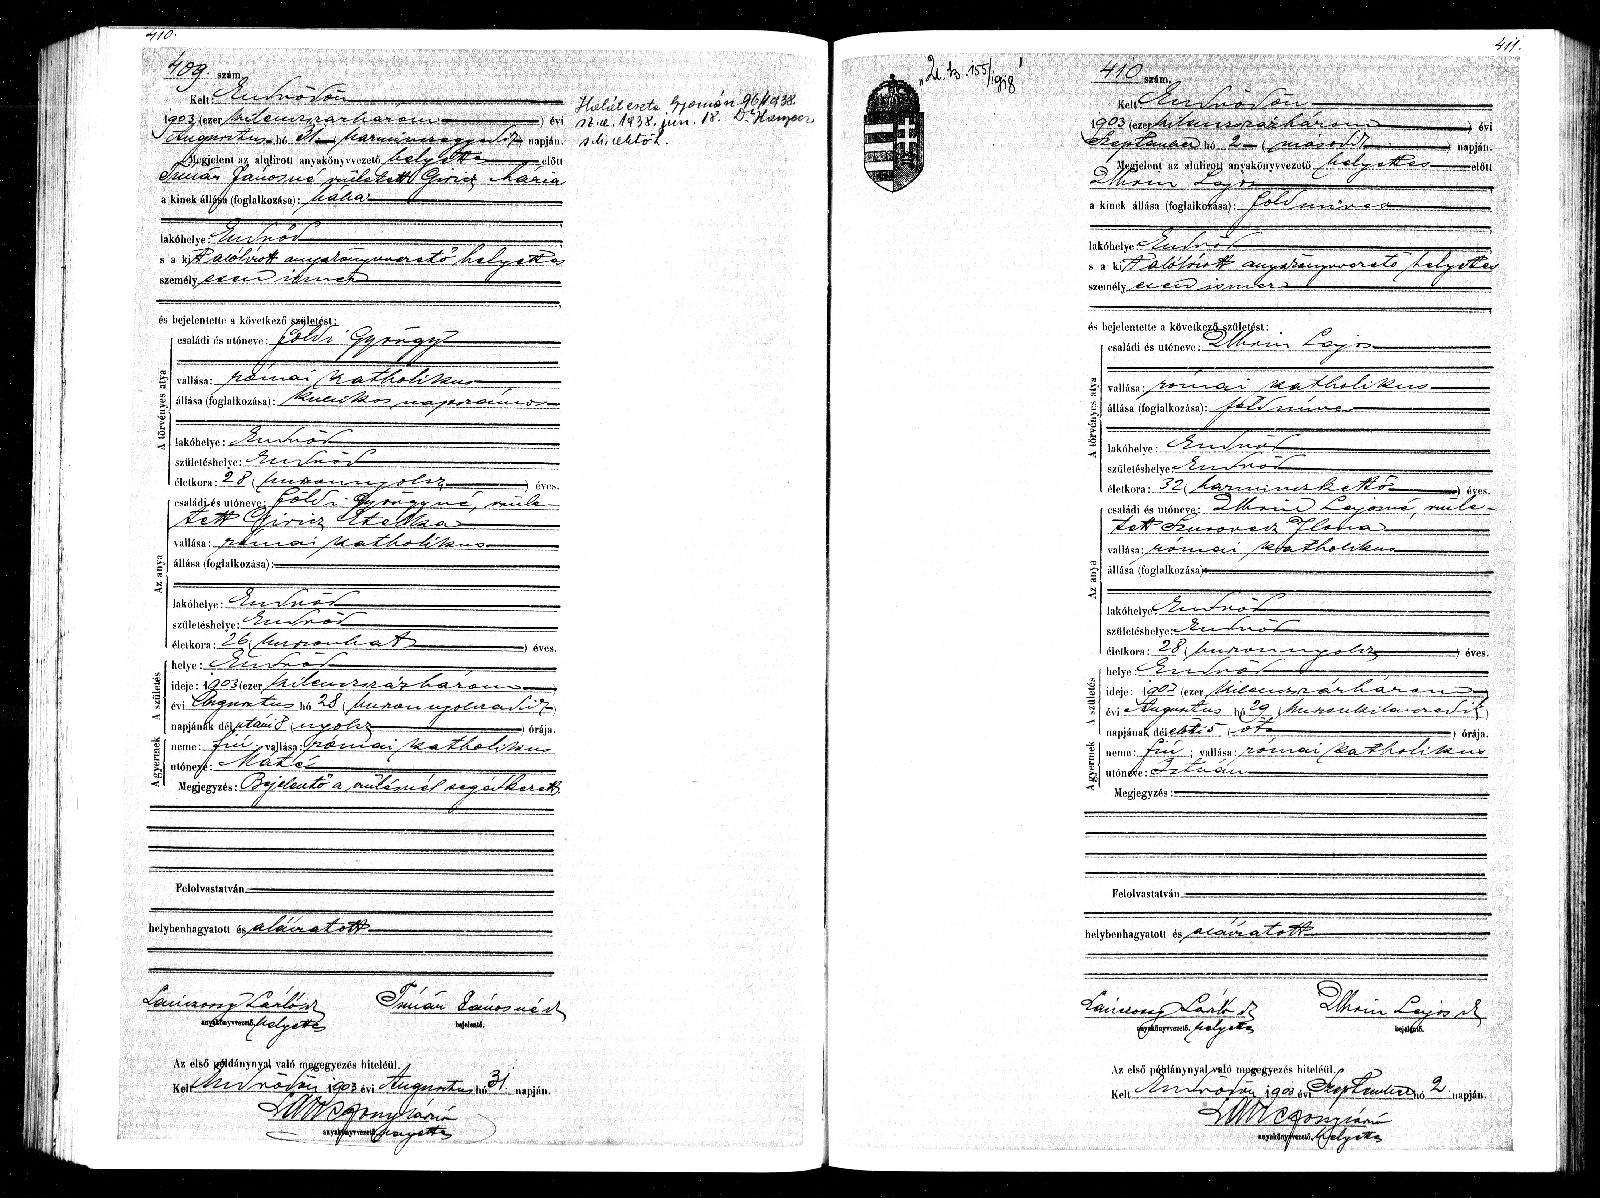 410.
409. szám.
Kelt: Endrődön
1903 (ezer kilenczszázhárom) évi
Augusztus hó 31 (harminczegyedik) napján.
Megjelent az alulirott anyakönyvvezető helyettes előtt
Tímár Jánosné született Giricz Mária
a kinek állása (foglalkozása): bába
lakóhelye: Endrőd
s a kit alólírott anyakönyvvezető helyettes
személyesen ismer
és bejelentette a következő születést:
A törvényes atya
családi és utóneve: Földi György
vallása: római katholikus
állása (foglalkozása): kubikos napszámos
lakóhelye: Endrőd
születéshelye: Endrőd
életkora: 28 (huszonnyolcz) éves.
Az anya
családi és utóneve: Földi Györgyné, szüle-
tett Giricz Etelka
vallása: római katholikus
állása (foglalkozása):
lakóhelye: Endrőd
születéshelye: Endrőd
életkora: 26 (huszonhat) éves.
A születés
helye: Endrőd
ideje: 1903 (ezer kilenczszázhárom)
évi Augusztus hó 28 (huszonnyolczadik)
napjának dél utáni 8 (nyolcz) órája.
A gyermek
neme: fiú vallása: római katholikus
utóneve: Máté
Megjegyzés: Bejelentő a szülésnél segédkezett
Felolvastatván
helybenhagyatott és aláíratott
Tímár Jánosné
anyakönyvvezető helyettes bejelentő.
Az első példánynyal való megegyezés hiteléül.
Kelt Endrődön 1903 évi Augusztus hó 31 napján.
anyakönyvvezető helyettes
Halálesete Gyomán 96/1938.
sz. a. 1938. jun. 18. Dr.
411.
155/1918
410 szám.
Kelt Endrődön
1903 (ezer kilenczszázhárom) évi
Szeptember hó 2 (második) napján.
Megjelent az alulirott anyakönyvvezető helyettes előtt
Lajos
a kinek állása (foglalkozása): földmíves
lakóhelye Endrőd
s a kit alólírott anyakönyvvezető helyettes
személyesen ismer
és bejelentette a következő születést:
A törvényes atya
családi és utóneve: Lajos
vallása: római katholikus
állása (foglalkozása): földmíves
lakóhelye: Endrőd
születéshelye: Endrőd
életkora: 32 (harminczkettő) éves.
Az anya
családi és utóneve: Lajosné, szüle-
tett Szurovecz Ilona
vallása: római katholikus
állása (foglalkozása):
lakóhelye: Endrőd
születéshelye: Endrőd
életkora: 28 (huszonnyolcz) éves.
A születés
helye Endrőd
ideje: 1903 (ezer kilenczszázhárom)
évi Augusztus hó 29 (huszonkilenczedik)
napjának dél előtti 5 (öt) órája.
A gyermek
neme: fiú; vallása: római katholikus
utóneve: István
Megjegyzés:
Felolvastatván
helybenhagyatott és aláíratott
Lajos
anyakönyvvezető helyettes bejelentő.
Az első példánynyal való megegyezés hiteléül.
Kelt Endrődön 1903 évi Szeptember hó 2 napján.
anyakönyvvezető helyettes